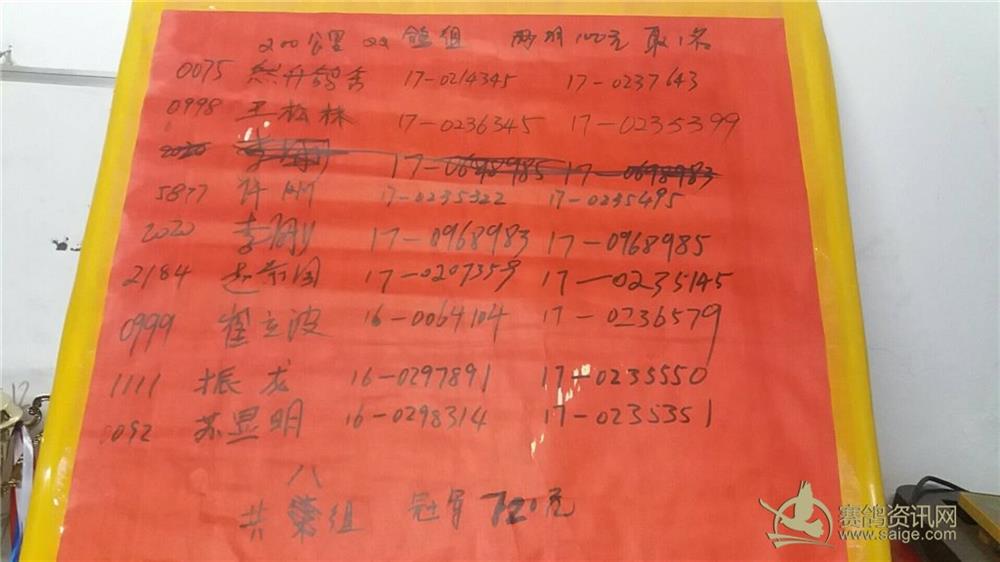 200公里 QQ 鸽组 两羽100元 取1名
0075 鸽舍 17-0214345 17-0237643
0998 王松林 17-0236345 17-0235399
2020 李刚 17-0698985 17-0698983
5877 许州 17-0235322 17-0235495
2020 李刚 17-0968983 17-0968985
2184 赵荣国 17-0207359 17-0235145
0999 翟立波 16-0064104 17-0236579
1111 振龙 16-0297891 17-0235550
0092 苏显明 16-0298314 17-0235351
八
共 组 冠军 720元
赛鸽资讯网
www.saige.com